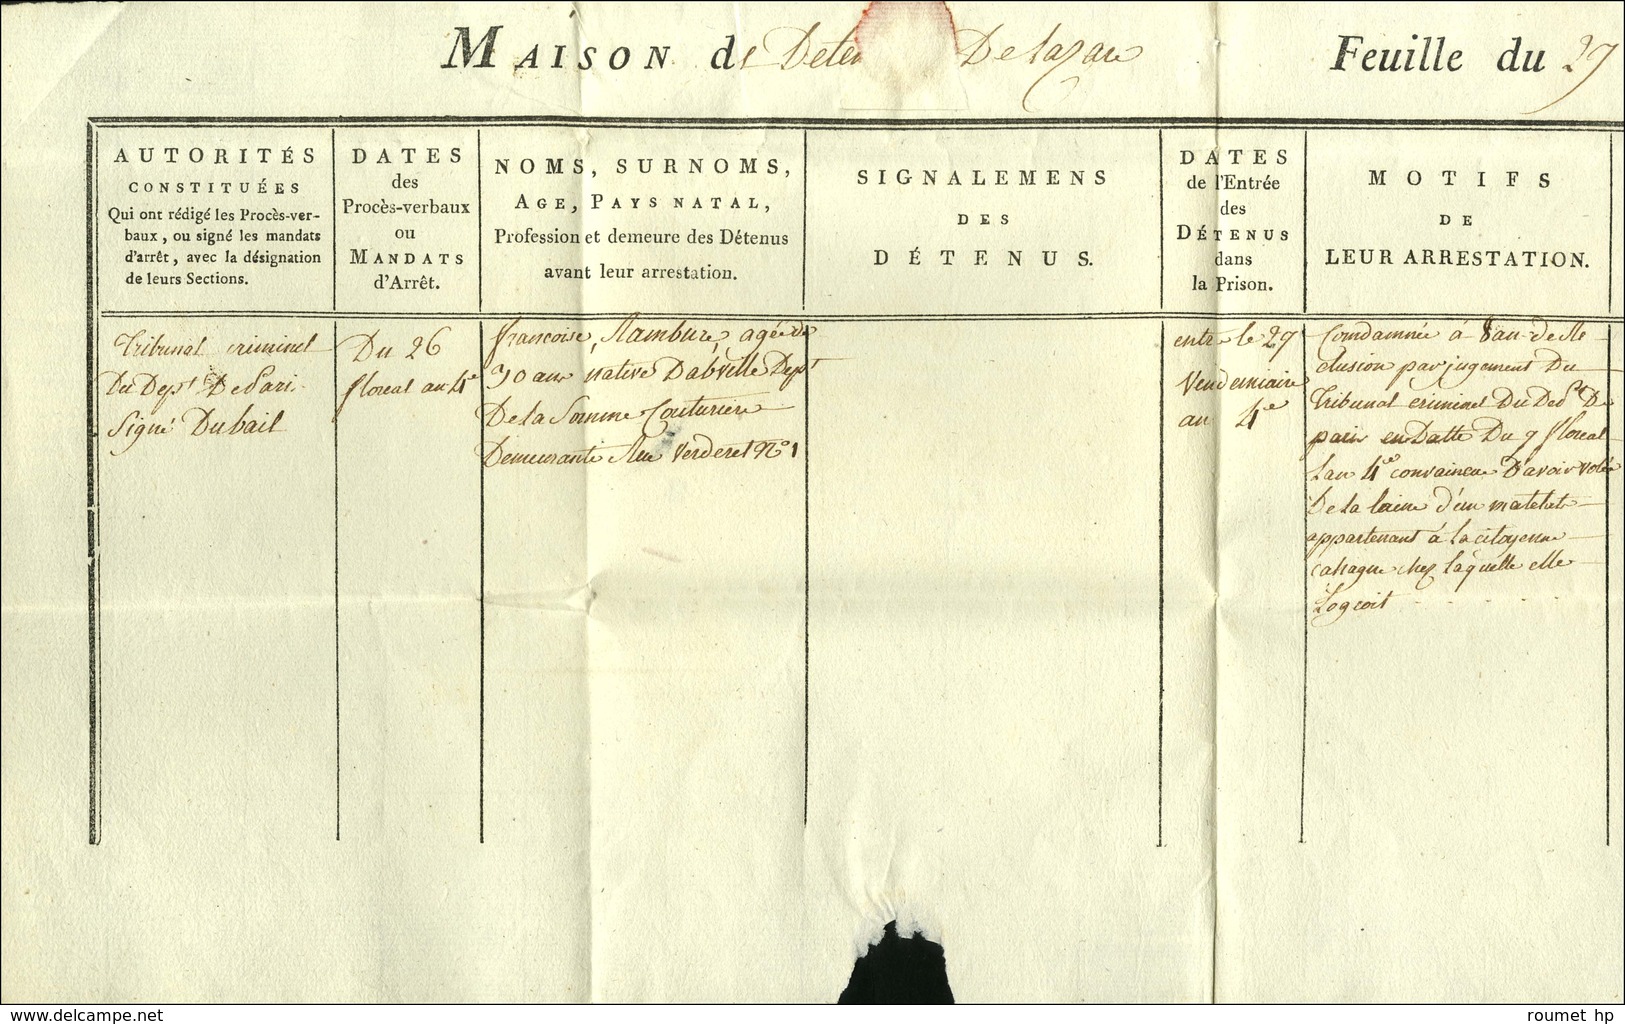 MAISON de Deten De Lazare
Feuille du 29
AUTORITÉS
CONSTITUÉES
Qui ont rédigé les Procès-ver-
baux, ou signé les mandats
d'arrêt, avec la désignation
de leurs Sections.
DATES
des
Procès-verbaux
ou
MANDATS
d'Arrêt.
NOMS, SURNOMS,
AGE, PAYS NATAL,
Profession et demeure des Détenus
avant leur arrestation.
SIGNALEMENS
DES
DÉTENUS.
DATES
de l'Entrée
des
DÉTENUS
dans
la Prison.
MOTIFS
DE
LEUR ARRESTATION.
Tribunal criminel
Du Dept De Pari
Signé Dubail
Du 26
floreal au 4e
françoise, agée de
30 ans native Dabville Dept
De la Somme Couturiere
Demeurante Rue Verderet No 1
entre le 29
Vendemiaire
an 4e
Condamnée á 8 an de Re
clusion par jugement Du
Tribunal criminel Du Dept De
paris en Datte Du 9 floreal
Lan 4e convaincue D'avoir volée
De la laine d'un matelat
appartenant á la citoyenne
chez laquelle elle
Logeoit
www.delcampe.net
roumet hp